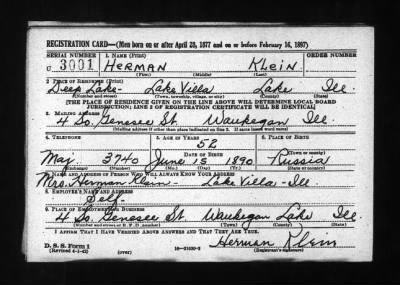 REGISTRATION CARD—(Men born on or after April 28, 1877 and on or before February 16, 1897)
SERIAL NUMBER 1. NAME (Print) ORDER NUMBER
U 3001 HERMAN KLEIN
(First) (Middle) (Last)
2. PLACE OF RESIDENCE (Print)
Deep Lake- Lake Villa Lake Ill.
(Number and street) (Town, township, village, or city) (County) (State)
[THE PLACE OF RESIDENCE GIVEN ON THE LINE ABOVE WILL DETERMINE LOCAL BOARD
JURISDICTION; LINE 2 OF REGISTRATION CERTIFICATE WILL BE IDENTICAL]
3. MAILING ADDRESS
4 So. Genesee St. Waukegan Ill.
[Mailing address if other than place indicated on line 2. If same insert word same]
4. TELEPHONE 5. AGE IN YEARS 6. PLACE OF BIRTH
52
DATE OF BIRTH (Town or county)
Maj. 3740 June 15 1890 Russia
(Exchange) (Number) (Mo.) (Day) (Yr.) (State or country)
7. NAME AND ADDRESS OF PERSON WHO WILL ALWAYS KNOW YOUR ADDRESS
Mrs. Herman Klein - Lake Villa - Ill.
8. EMPLOYER'S NAME AND ADDRESS
Self-
9. PLACE OF EMPLOYMENT OR BUSINESS
4 So. Genesee St. Waukegan Lake Ill.
(Number and street or R. F. D. number) (Town) (County) (State)
I AFFIRM THAT I HAVE VERIFIED ABOVE ANSWERS AND THAT THEY ARE TRUE.
Herman Klein
D. S. S. Form 1
(Revised 4-1-42) (over) (Registrant's signature)